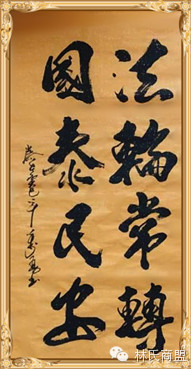 法輪常轉
國泰民安
林氏商盟